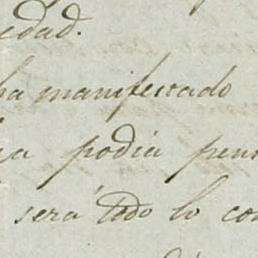 edad.
ha manifestado
podia pens
será todo lo con